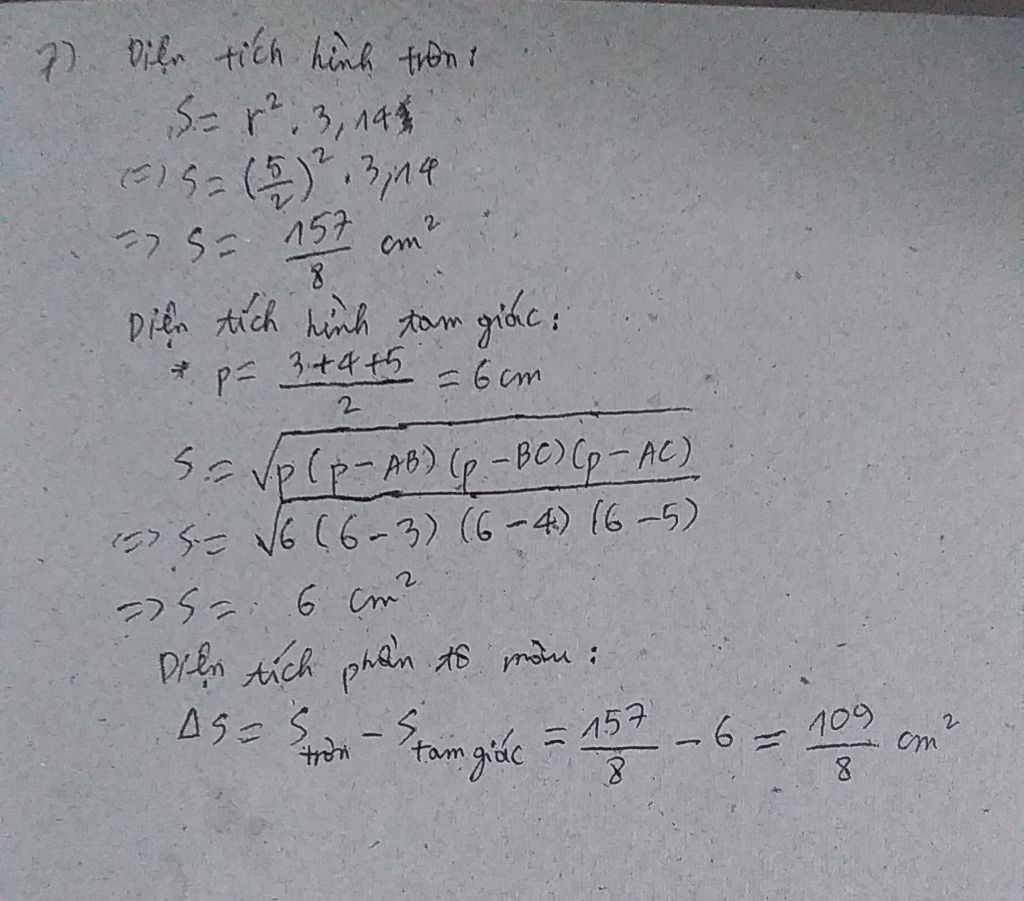 7) Diện tích hình tròn:
S = r². 3,14
=> S = (5/2)² . 3,14
=> S = 157/8 cm²
Diện tích hình tam giác:
* p = (3+4+5)/2 = 6 cm
S = √p(p-AB)(p-BC)(p-AC)
=> S = √6(6-3)(6-4)(6-5)
=> S = 6 cm²
Diện tích phần tô màu:
ΔS = S tròn - S tam giác = 157/8 - 6 = 109/8 cm²